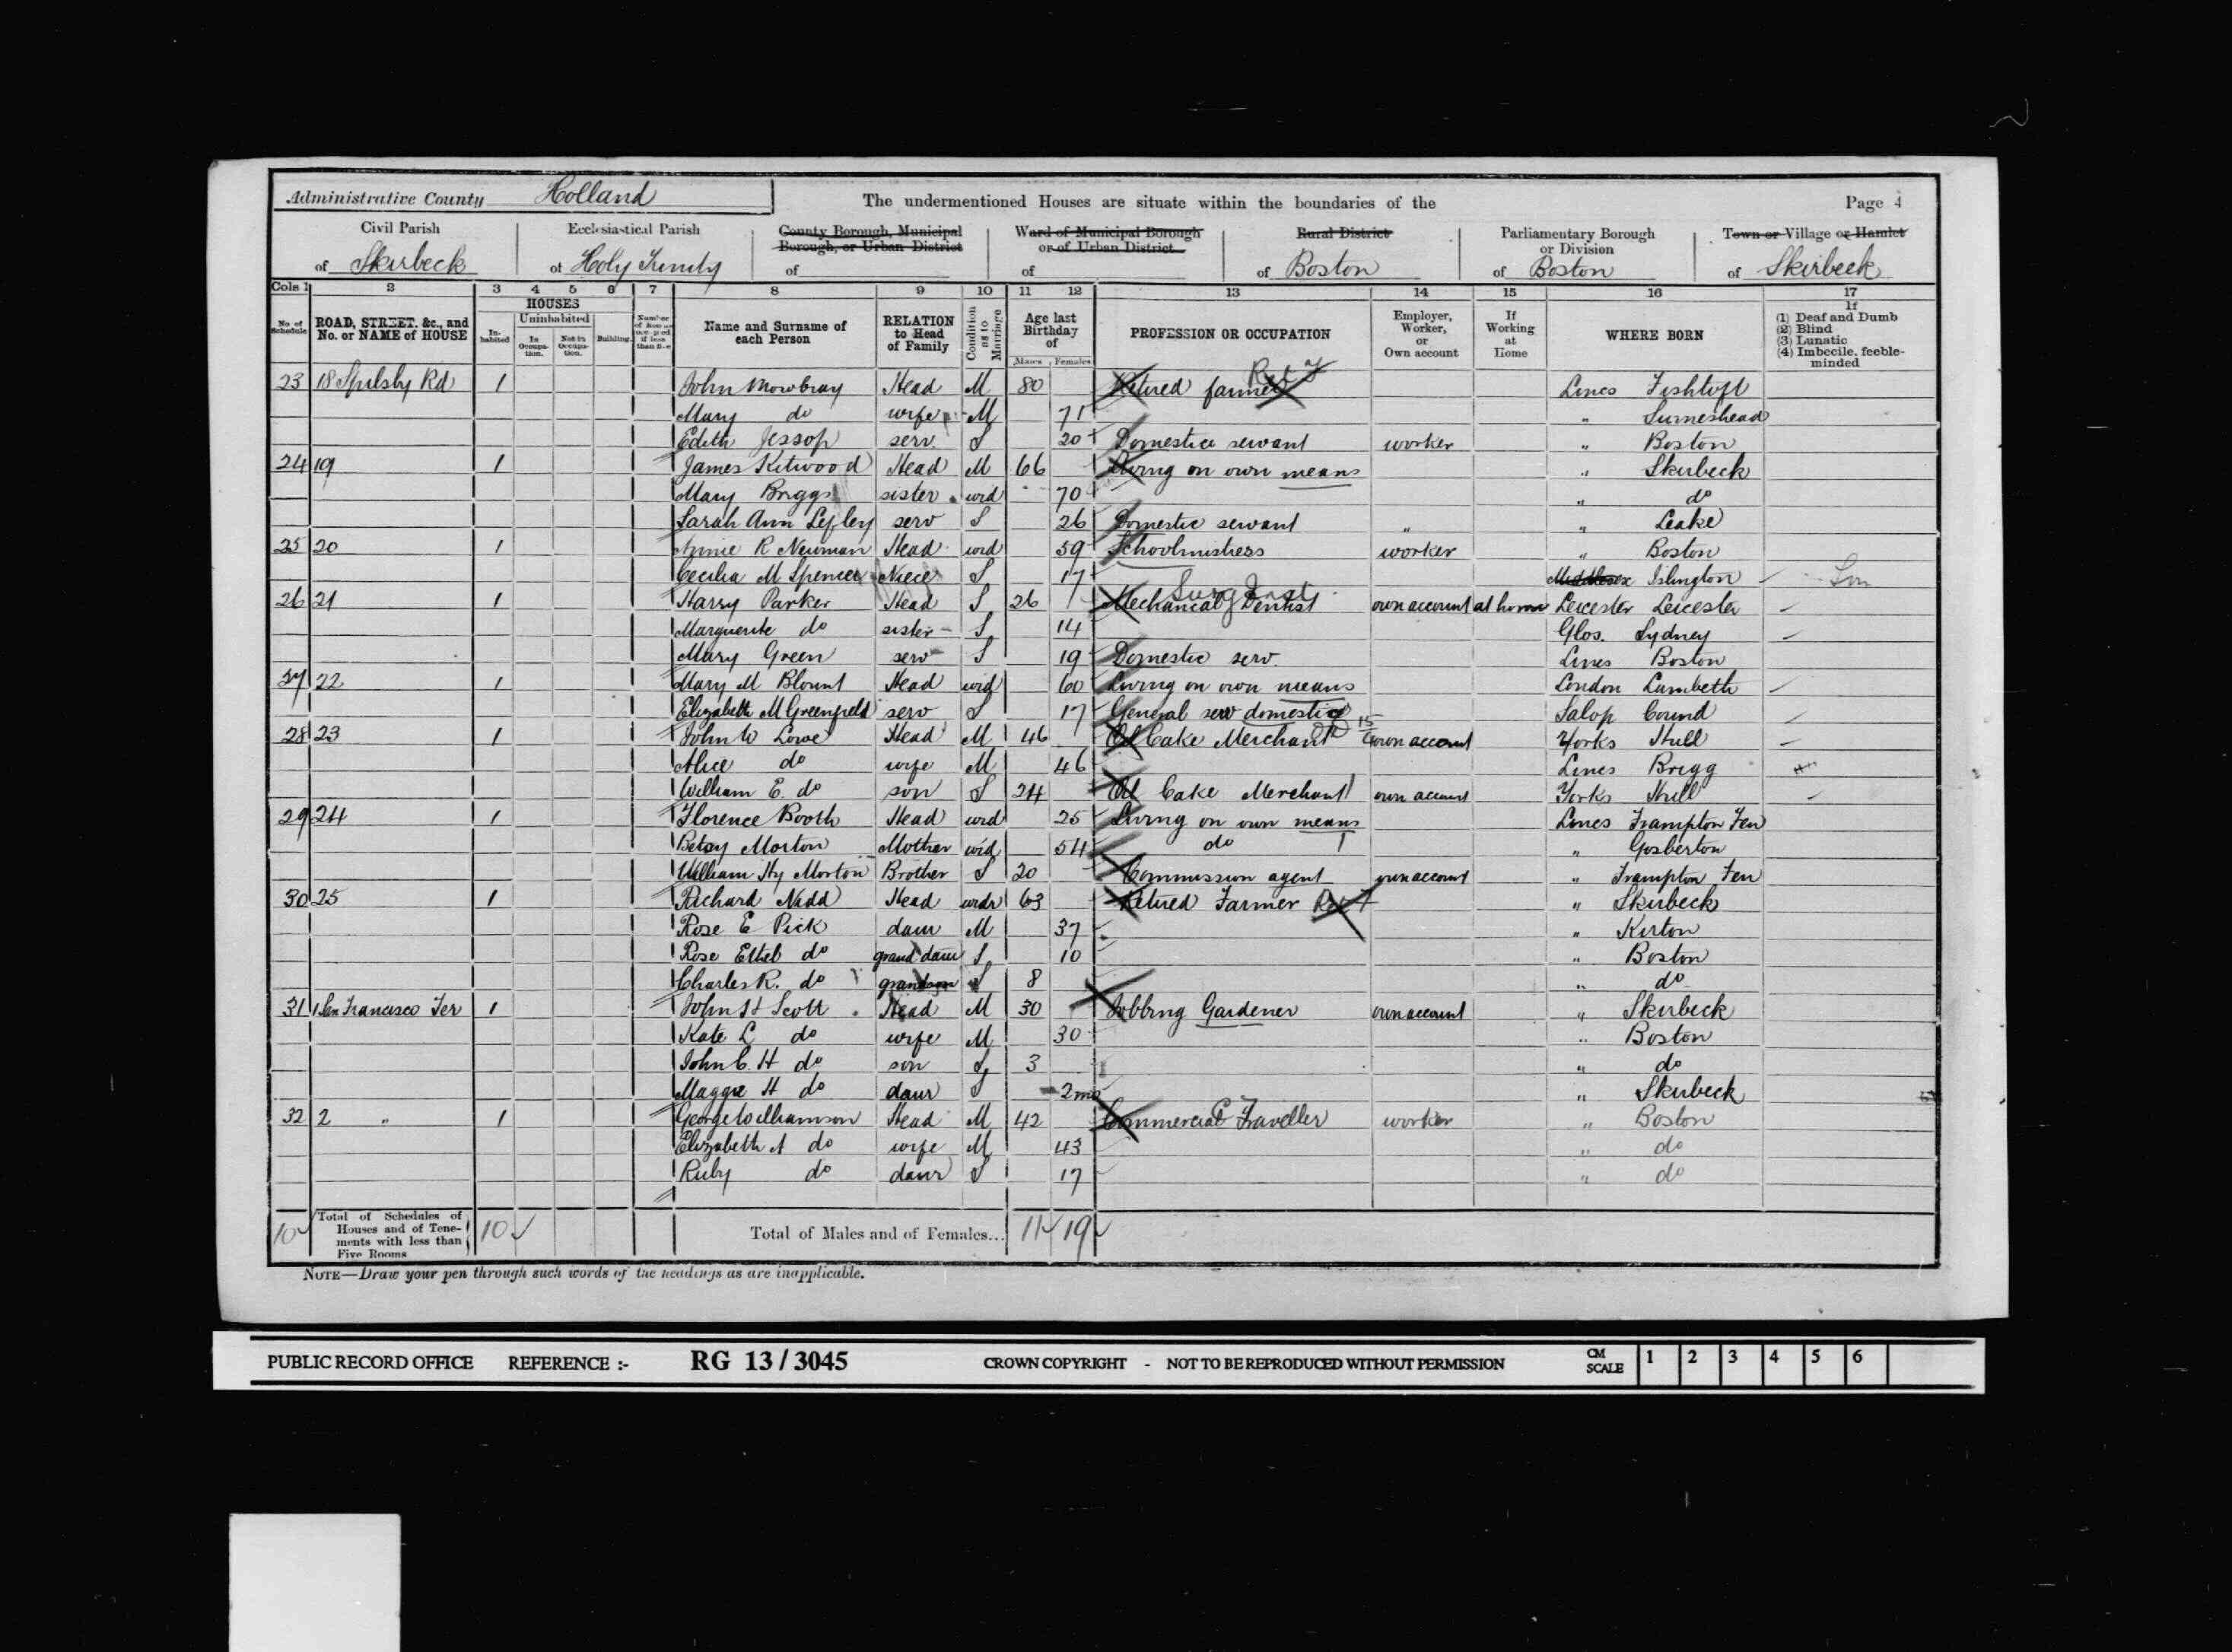 Administrative County Holland The undermentioned Houses are situate within the boundaries of the Page 4
Civil Parish Ecclesiastical Parish County Borough, Municipal Borough, or Urban District Ward of Municipal Borough or of Urban District Rural District Parliamentary Borough or Division Town or Village or Hamlet
of Skirbeck of Holy Trinity of of of Boston of Boston of Skirbeck
Cols 1 2 3 4 5 6 7 8 9 10 11 12 13 14 15 16 17
No. of Schedule ROAD, STREET, &c., and No. or NAME of HOUSE HOUSES In-habited Uninhabited In Occupa-tion. Not in Occupa-tion. Building. Number of Rooms occupied if less than five Name and Surname of each Person RELATION to Head of Family Condition as to Marriage Age last Birthday of Males Females PROFESSION OR OCCUPATION Employer, Worker, or Own account If Working at Home WHERE BORN If (1) Deaf and Dumb (2) Blind (3) Lunatic (4) Imbecile, feeble-minded
23 18 Spilsby Rd 1 John Mowbray Head M 80 Retired farmer Ret F Lincs Fishtoft
Mary do wife M 71 " Surneshead
Edith Jessop serv. S 20 Domestic servant worker " Boston
24 19 1 James Kitwood Head M 66 Living on own means " Skirbeck
Mary Briggs sister wid 70 " do
Sarah Ann Lefley serv S 26 Domestic servant " " Leake
25 20 1 Annie R Newman Head wid 59 Schoolmistress worker " Boston
Cecilia M Spencer Niece S 17 Middlesex Islington Lon
26 21 1 Harry Parker Head S 26 Mechanical Dentist Surg Inst own account at home Leicester Leicester
Marguerite do sister S 14 Glos. Lydney
Mary Green serv S 19 Domestic serv. Lincs Boston
27 22 1 Mary M Blount Head wid 60 Living on own means London Lambeth
Elizabeth M Greenfield serv S 17 General serv domestic Salop Cound
28 23 1 John W Lowe Head M 46 Oil Cake Merchant 15 own account Yorks Hull
Alice do wife M 46 Lincs Brigg
William E. do son S 24 Oil Cake Merchant own account Yorks Hull
29 24 1 Florence Booth Head wid 25 Living on own means Lincs Frampton Fen
Betsy Morton Mother wid 54 do " Gosberton
William Hy Morton Brother S 20 Commission agent own account " Frampton Fen
30 25 1 Richard Nidd Head widr 63 Retired Farmer Ret F " Skirbeck
Rose E Pick daur M 37 " Kirton
Rose Ethel do grand daur S 10 " Boston
Charles R. do grandson S 8 " do
31 1 San Francisco Ter 1 John H Scott Head M 30 Jobbing Gardener own account " Skirbeck
Kate L do wife M 30 " Boston
John C. H do son S 3 " do
Maggie H do daur S 2mo " Skirbeck
32 2 " 1 George Williamson Head M 42 Commercial Traveller worker " Boston
Elizabeth A do wife M 43 " do
Ruby do daur S 17 " do
10 Total of Schedules of Houses and of Tene-ments with less than Five Rooms 10 Total of Males and of Females... 11 19
NOTE—Draw your pen through such words of the headings as are inapplicable.
PUBLIC RECORD OFFICE REFERENCE :- RG 13 / 3045 CROWN COPYRIGHT - NOT TO BE REPRODUCED WITHOUT PERMISSION CM SCALE 1 2 3 4 5 6